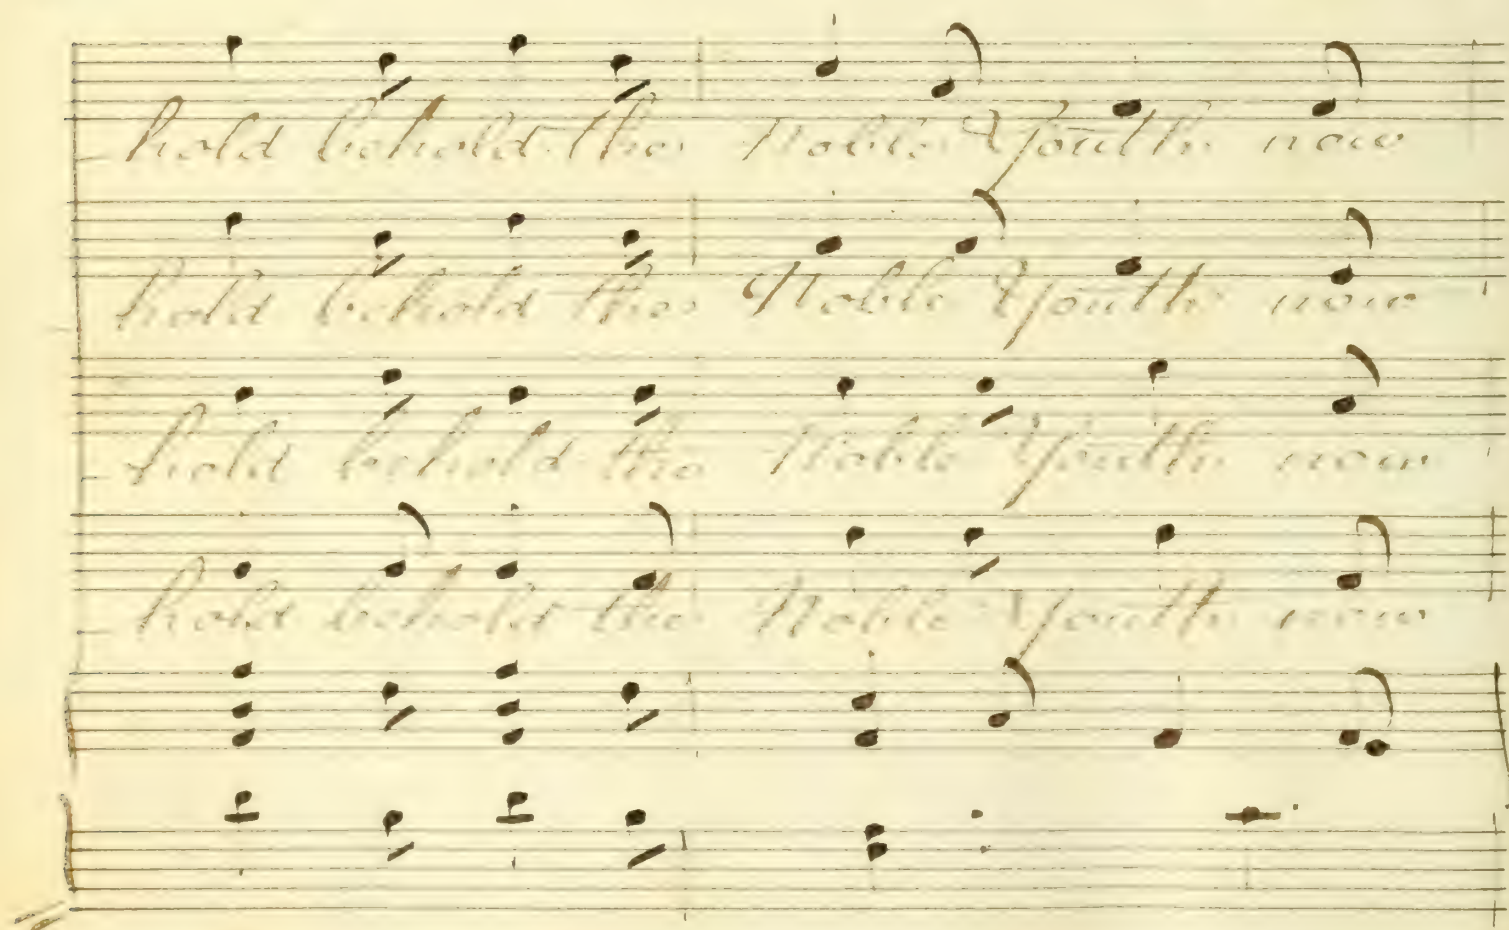 hold behold the Noble Youth now
hold behold the Noble Youth now
hold behold the Noble Youth now
hold behold the Noble Youth now